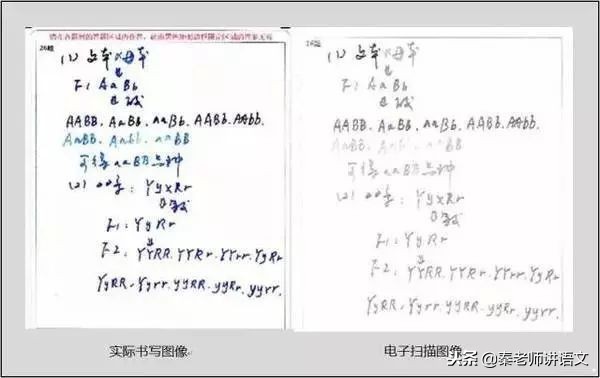 请在各题目的答题区域内作答，超出黑色矩形边框限定区域的答案无效
26题
(1) 父本×母本
F1 AaBb
AABB. AaBb. aaBb. AABb. AAbb.
AaBB. Aabb. aaBB
可得aaBB品种
(2) 四季: YyxRr
F1: YyRr
F2: YYRR. YYRr. YYrr. YyRr
YyRR. Yyrr. yyRR. yyRr. yyrr.
(1) 父本×母本
F1 AaBb
AABB. AaBb. aaBb. AABb. AAbb.
AaBB. Aabb. aaBB
可得aaBB品种
(2) 四季: YyxRr
F1: YyRr
F2: YYRR. YYRr. YYrr. YyRr
YyRR. Yyrr. yyRR. yyRr. yyrr.
实际书写图像
电子扫描图像
头条 @秦老师讲语文